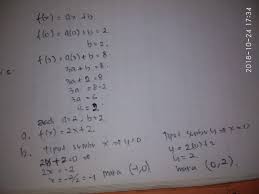 f(x) = ax + b
f(0) = a(0) + b = 2
b = 2
f(3) = a(3) + b = 8
3a + b = 8
3a + 2 = 8
3a = 8-2
3a = 6
a = 2
a = 2, b = 2
a. f(x) = 2x + 2
b. titik potong sumbu x → y = 0
2x + 2 = 0
2x = -2
x = -2/2 = -1 maka (-1,0)
sumbu y → x = 0
y = 2(0) + 2
y = 2
maka (0,2)
2018-10-24 17:34